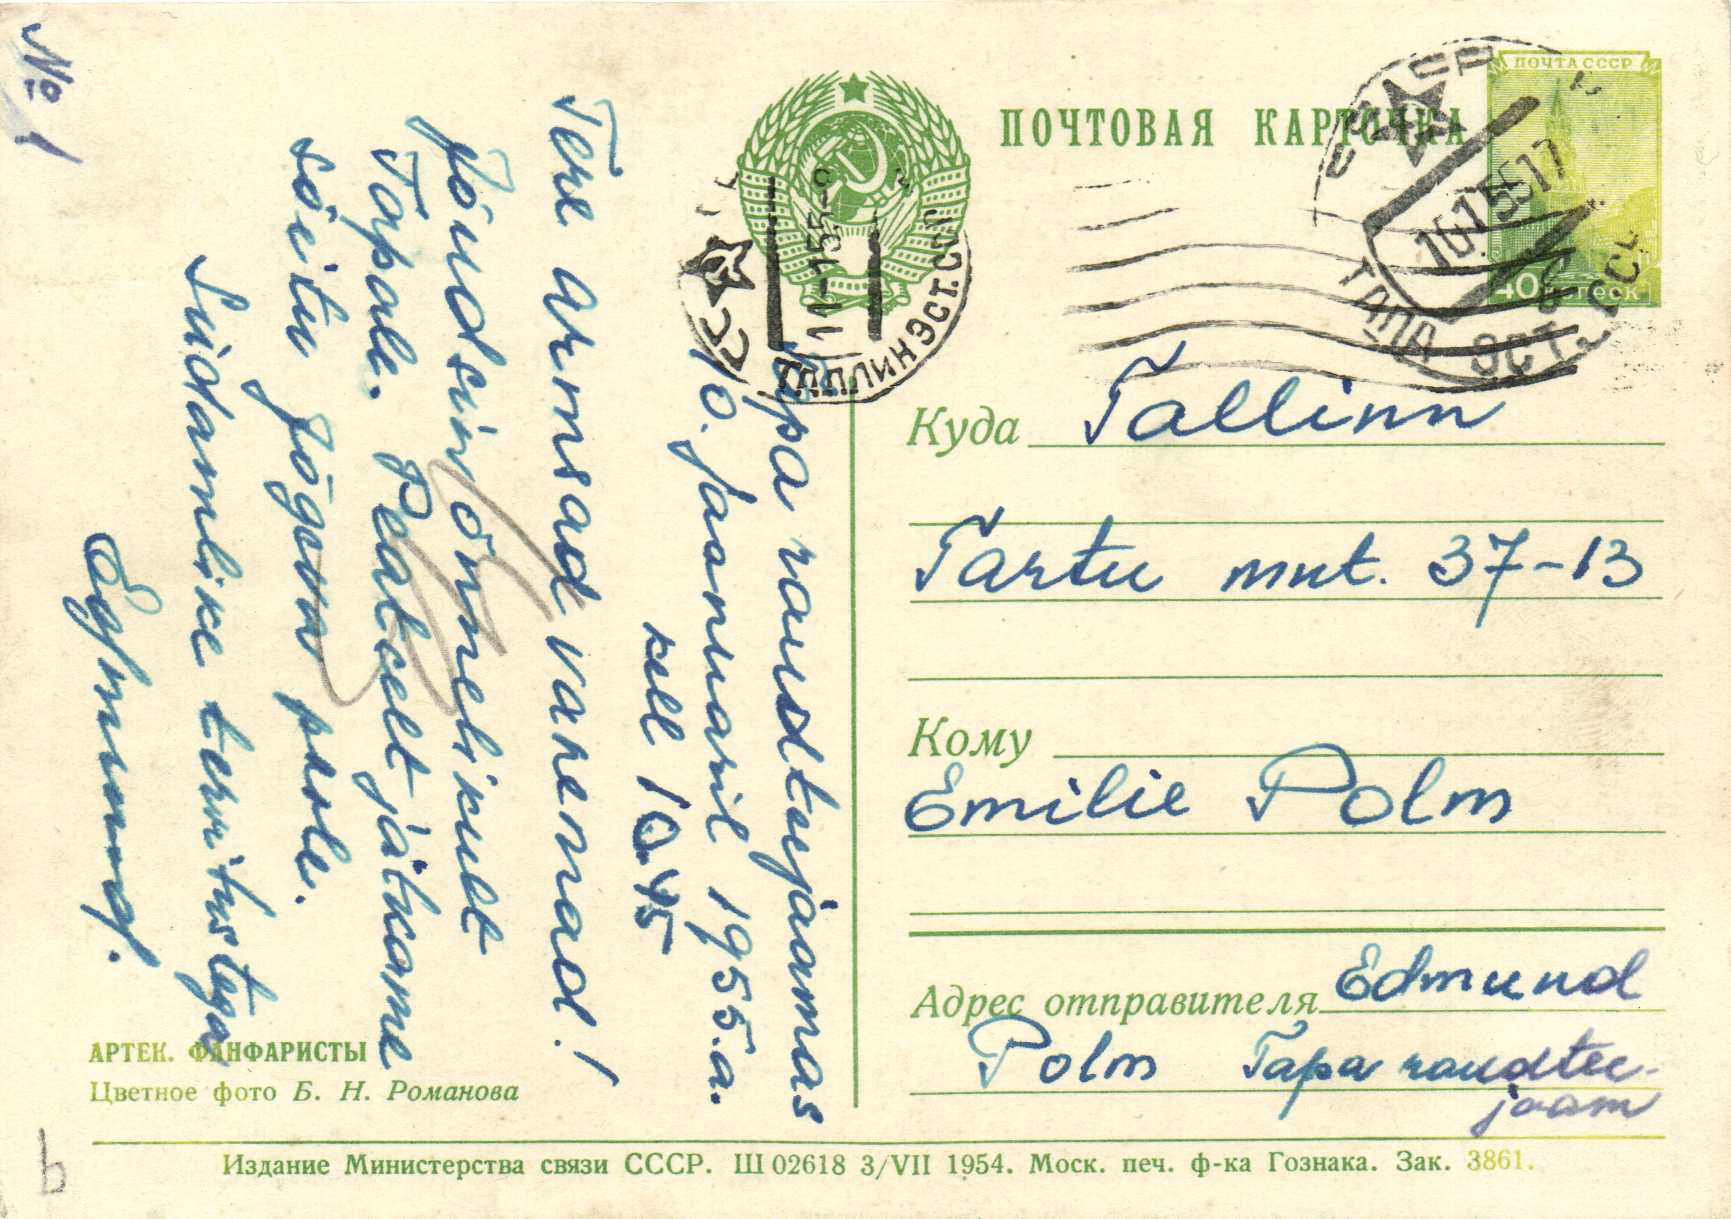 № 1
ПОЧТОВАЯ КАРТОЧКА
ПОЧТА СССР
40 КОПЕЕК
СССР
10 1 55 17
ТАПА ЭСТ. ССР
11-1 55-9
ТАЛЛИН ЭСТ. ССР
Tapa raudteejaamas
10. jaanuaril 1955.a.
kell 10.45
Tere armsad vanemad!
Jõudsin õnnelikult
Tapale. Peatselt jätkame
sõitu Jõgeva poole.
Südamlike tervitustega
Edmund.
Куда Tallinn
Tartu mnt. 37-13
Кому
Emilie Polm
Адрес отправителя Edmund
Polm Tapa raudtee-
jaam
АРТЕК. ФАНФАРИСТЫ
Цветное фото Б. Н. Романова
Издание Министерства связи СССР. Ш 02618 3/VII 1954. Моск. печ. ф-ка Гознака. Зак. 3861.